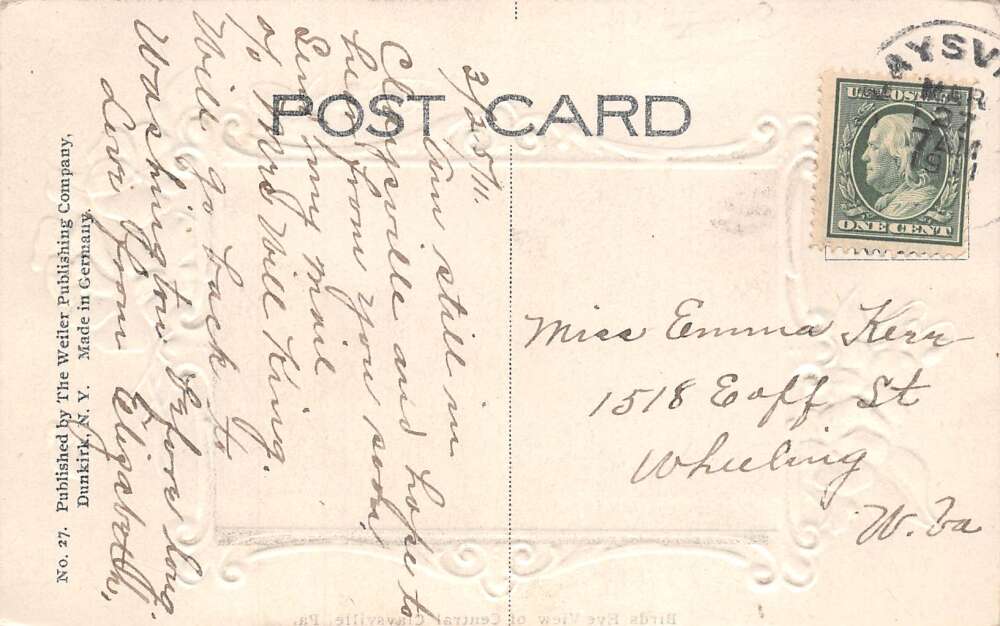 POST CARD
3/25/11.
Am still in
Claysville and hope to
hear from you soon.
Send my mail
c/o Mrs Will King.
Will go back to
Washington before long.
Love from Elizabeth.
Miss Emma Kerr
1518 Eoff St
Wheeling
W. Va
AYSV
MAR
7 AM
U.S. POSTAGE
ONE CENT
No. 27. Published by The Weiler Publishing Company,
Dunkirk, N. Y. Made in Germany.
Birds Eye View of Central Claysville, Pa.